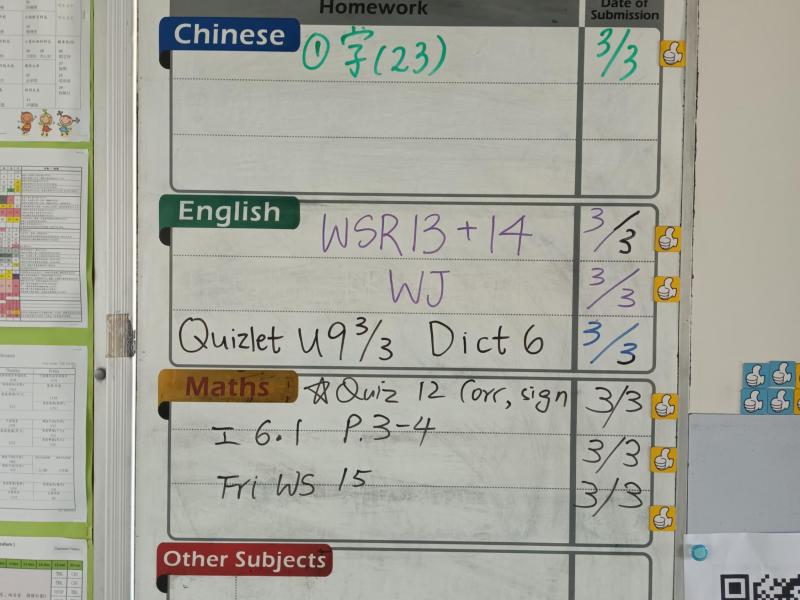 Homework Date of Submission
Chinese
① 字(23) 3/3
English
WSR13+14 3/3
WJ 3/3
Quizlet U9 3/3 Dict 6 3/3
Maths ☆Quiz 12 Corr, sign 3/3
I 6.1 P.3-4 3/3
Fri WS 15 3/3
Other Subjects